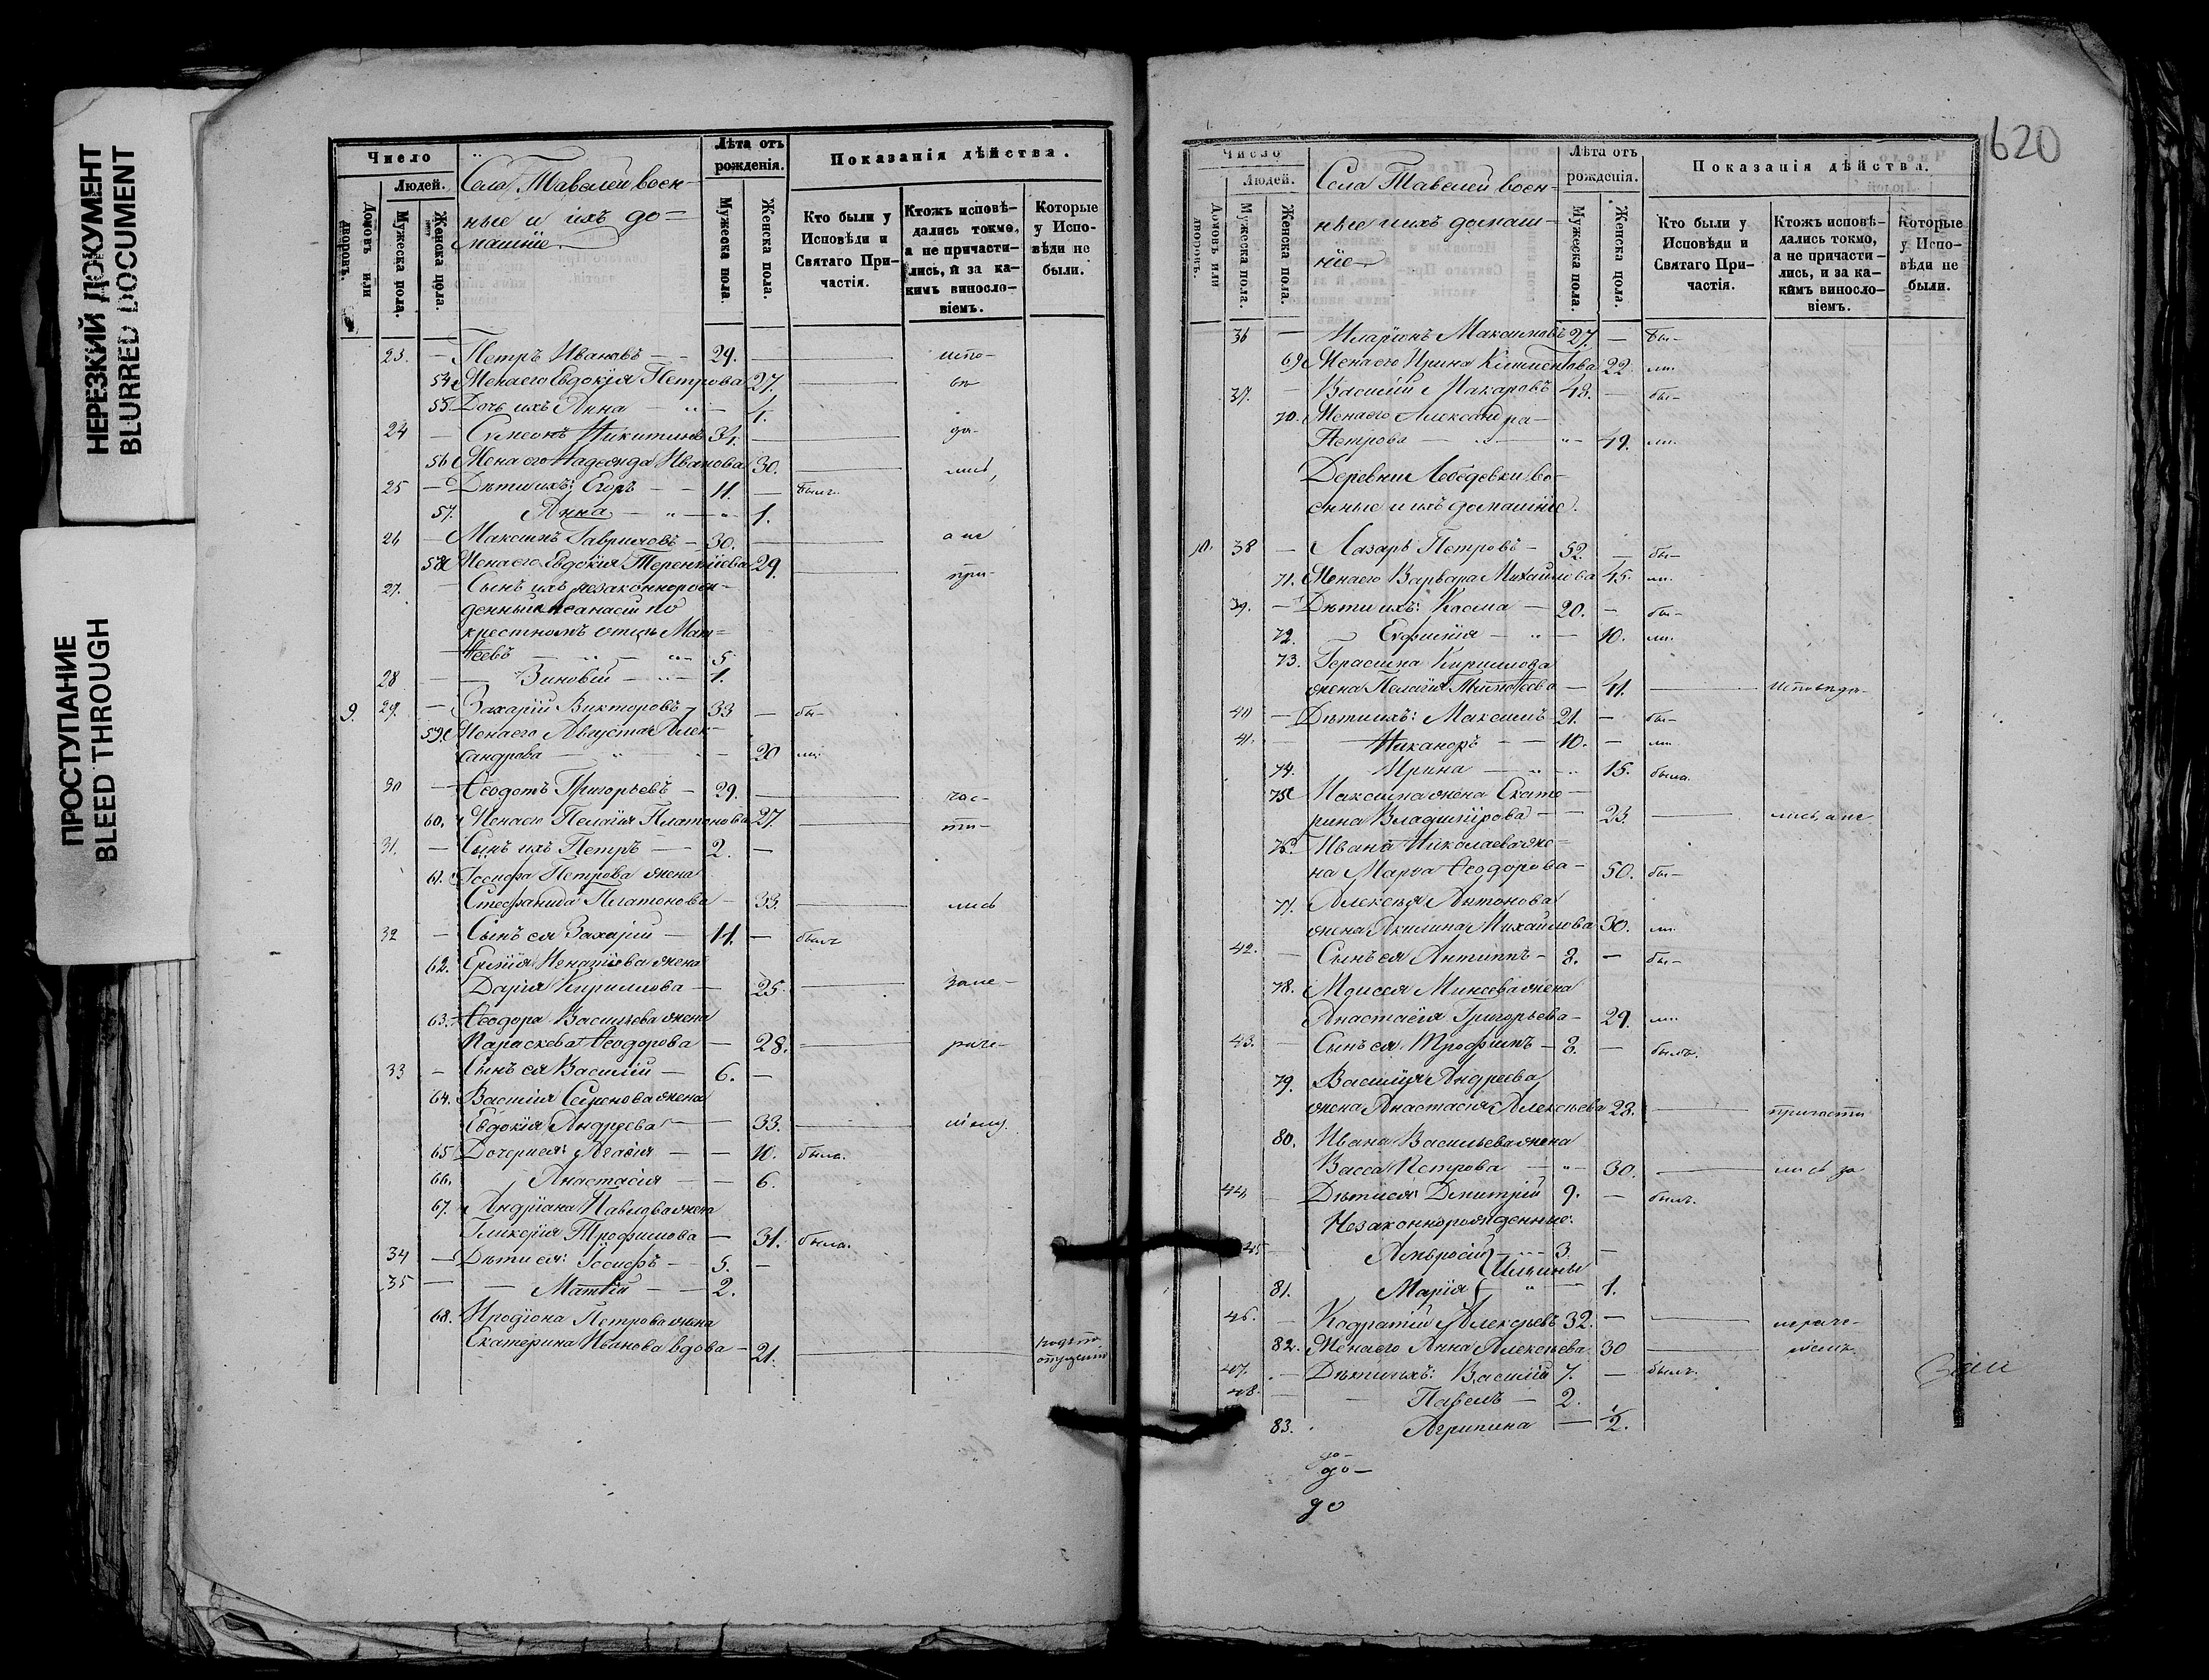 НЕРЕЗКИЙ ДОКУМЕНТ
BLURRED DOCUMENT
ПРОСТУПАНИЕ
BLEED THROUGH
Число
Людей.
Домовъ или дворовъ.
Мужеска пола.
Женска пола.
Села Тавелей воен-
ные и ихъ до=
машніе
Лѣта отъ рожденія.
Мужеска пола.
Женска пола.
Показанія дѣйства.
Кто были у Исповѣди и Святаго При-частія.
Ктожъ исповѣ-дались токмо, а не причасти-лись, и за ка-кимъ винословіемъ.
Которые у Испо-вѣди не были.
23. — Петръ Ивановъ — 29. — испо-
54 Жена его Евдокія Петрова 27. — вѣ
55 Дочь ихъ Анна — 1.
24 — Симеонъ Никитинъ 34. — да-
56 Жена его Надежда Иванова 30. — лись,
25 — Дѣти ихъ: Егоръ — 11. — былъ.
57. Анна — 1.
26 — Максимъ Гавриловъ — 30. — а не
58 Жена его Евдокія Терентіева 29. — при-
27. Сынъ ихъ незаконнорож-
денный Аѳанасій по
крестномъ отцѣ Мат=
ѳеевъ — 5
28 — Зиновій — 1.
9. 29. — Захарій Викторовъ — 33 — бы-
59. Жена его Августа Алек-
сандрова — 20 ли.
30 — Ѳеодотъ Григорьевъ — 29. — час-
60. Жена его Пелагія Платонова 27. — ти-
31. — Сынъ ихъ Петръ — 2. —
61. Іосифа Петрова жена
Стефанида Платонова — 33. — лись
32 — Сынъ ея Захарій — 11. — былъ
62. Ермія Игнатіева жена
Дарія Кириллова — 25. — за не-
63. Ѳеодора Васильева жена
Параскева Ѳеодорова — 28. — раче-
33 — Сынъ ея Василій — 6. —
64. Василія Семенова жена
Евдокія Андреева — 33. — ніемъ.
65 Дочери ея: Агаѳія — 10. была.
66. Анастасія — 6.
67. Андріана Павлова жена
Гликерія Трофимова — 31. была.
34 — Дѣти ея: Іосифъ — 5. —
35 — Матѳій — 2.
68. Иродіона Петрова жена
Екатерина Иванова вдова — 21.
620
Число
Людей.
Домовъ или дворовъ.
Мужеска пола.
Женска пола.
Села Тавелей воен=
ные и ихъ домаш—
ніе
Лѣта отъ рожденія.
Мужеска пола.
Женска пола.
Показанія дѣйства.
Кто были у Исповѣди и Святаго При-частія.
Ктожъ исповѣ-дались токмо, а не причасти-лись, и за ка-кимъ винословіемъ.
Которые у Испо-вѣди не были.
36 — Иларіонъ Максимовъ 27. — бы-
69 Жена его Ирина Климентова 22 ли.
37. — Василій Макаровъ 48. — бы-
70. Жена его Александра
Петрова — 49. ли.
Деревни Лебедевки во-
енные и ихъ домашніе.
10. 38 — Лазарь Петровъ — 52. — бы-
71. Жена его Варвара Михайлова 45. ли.
39. — Дѣти ихъ: Косма — 20. — бы-
72. Евфимія — 10. ли.
73. Герасима Кириллова
жена Пелагія Тимоѳеева — 41. — исповѣда-
40 — Дѣти ихъ: Максимъ 21. — бы-
41. — Никаноръ — 10. — ли.
74. Ирина — 15. была.
75. Максима жена Екате-
рина Владимірова — 23. — лись, а не
76. Ивана Николаева же-
на Марѳа Ѳеодорова — 50. бы-
77. Алексѣя Антонова
жена Акилина Михайлова 30. ли.
42. — Сынъ ея Антиппъ — 8. — бы-
78. Моисея Минеева жена
Анастасія Григорьева — 29. ли.
43. — Сынъ ея Трофимъ — 8. — былъ.
79. Василія Андреева
жена Анастасія Алексѣева 28. — причасти
80. Ивана Васильева жена
Васса Петрова — 30. — лись за
44. — Дѣти ея Димитрій 9. — былъ.
Незаконнорожденные:
45 Амвросій — 3 —
Ильины
81. Марія — 1.
46. — Кодратій Алексѣевъ 32. — нераче-
82. Жена его Анна Алексѣева 30 — ніемъ.
47. — Дѣти ихъ: Василій 7. — былъ.
48. — Павелъ — 2.
83. Агрипина — 1/2.
до-
до-
до